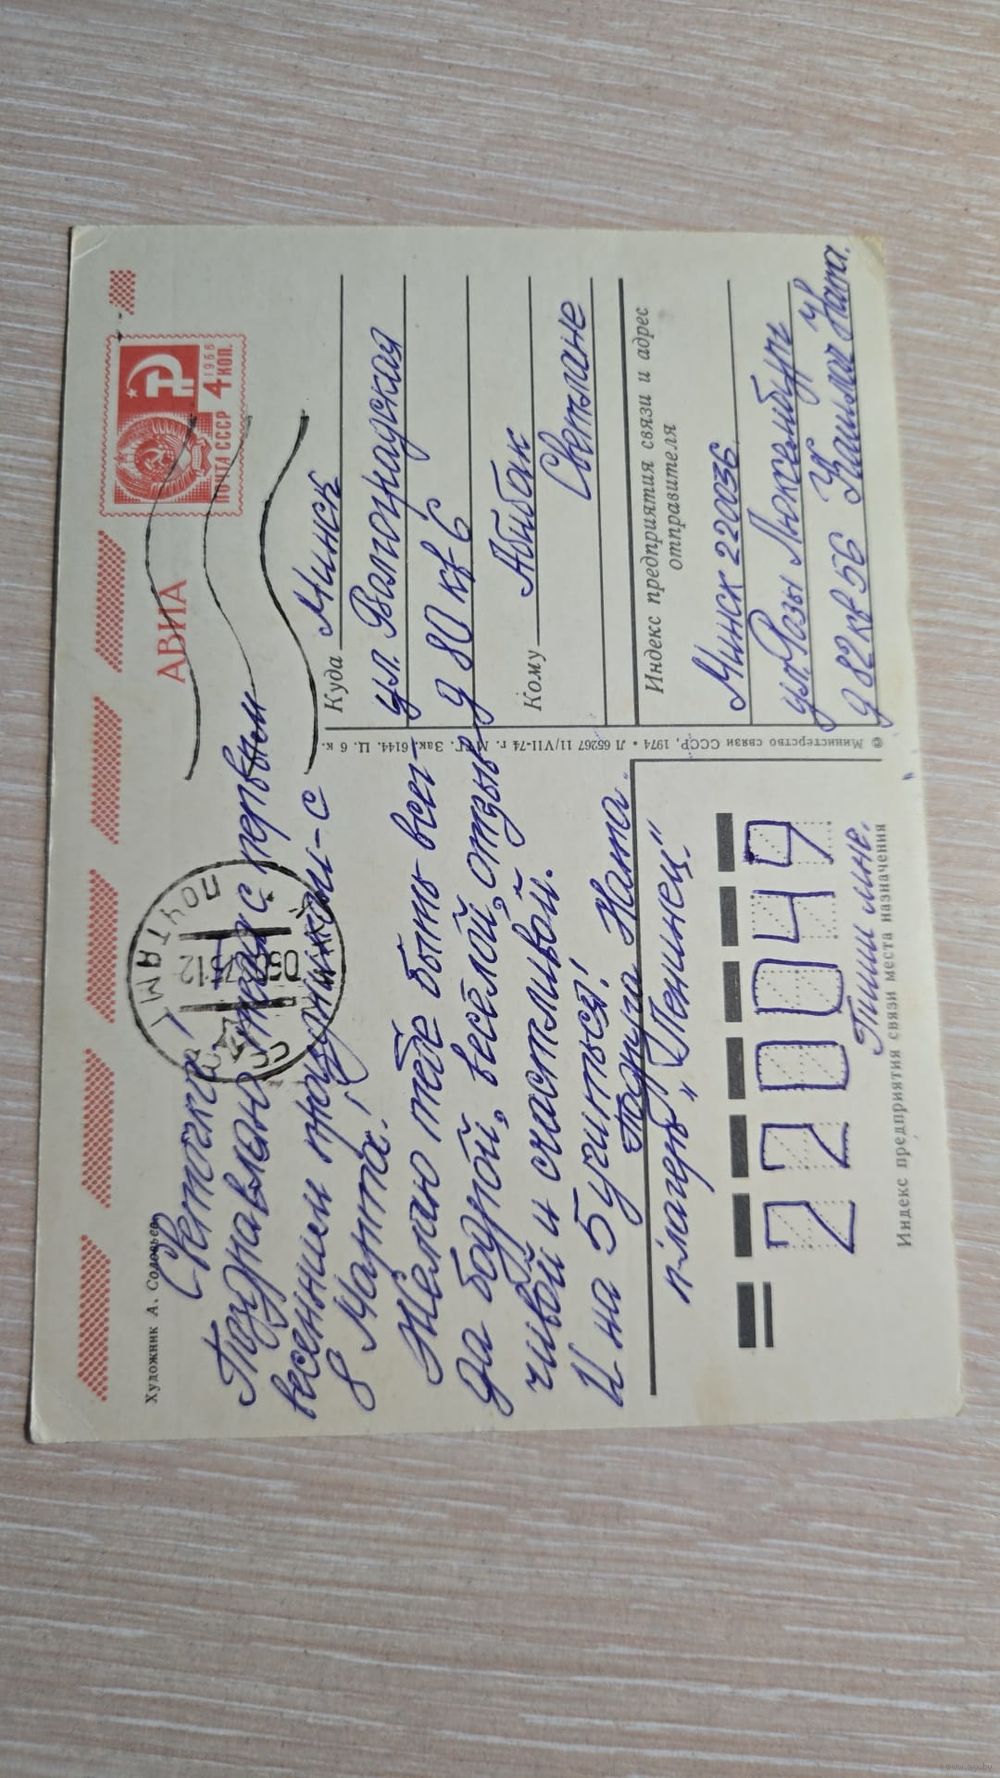 Художник А. Соловьев
АВИА
ПОЧТА СССР
1966
4 КОП.
Светочка!
Поздравляю тебя с первым
весенним праздником-с
8 Марта!
Желаю тебе быть всег-
да бодрой, весёлой, отзыв
чивой и счастливой.
И на 5 учиться!
Подруга Ната.
п-лагерь „Ленинец."
Куда Минск
ул. Волгоградская
д 80 кв 6
Кому Абибак
Светлане
Индекс предприятия связи и адрес
отправителя
Минск 220036
ул. Розы Люксембург
д 82 кв 56
Ната.
© Министерство связи СССР, 1974 • Л 65267 11/VII-74 г. МТГ. Зак. 6144. Ц. 6 к.
220049
Пиши мне.
Индекс предприятия связи места назначения